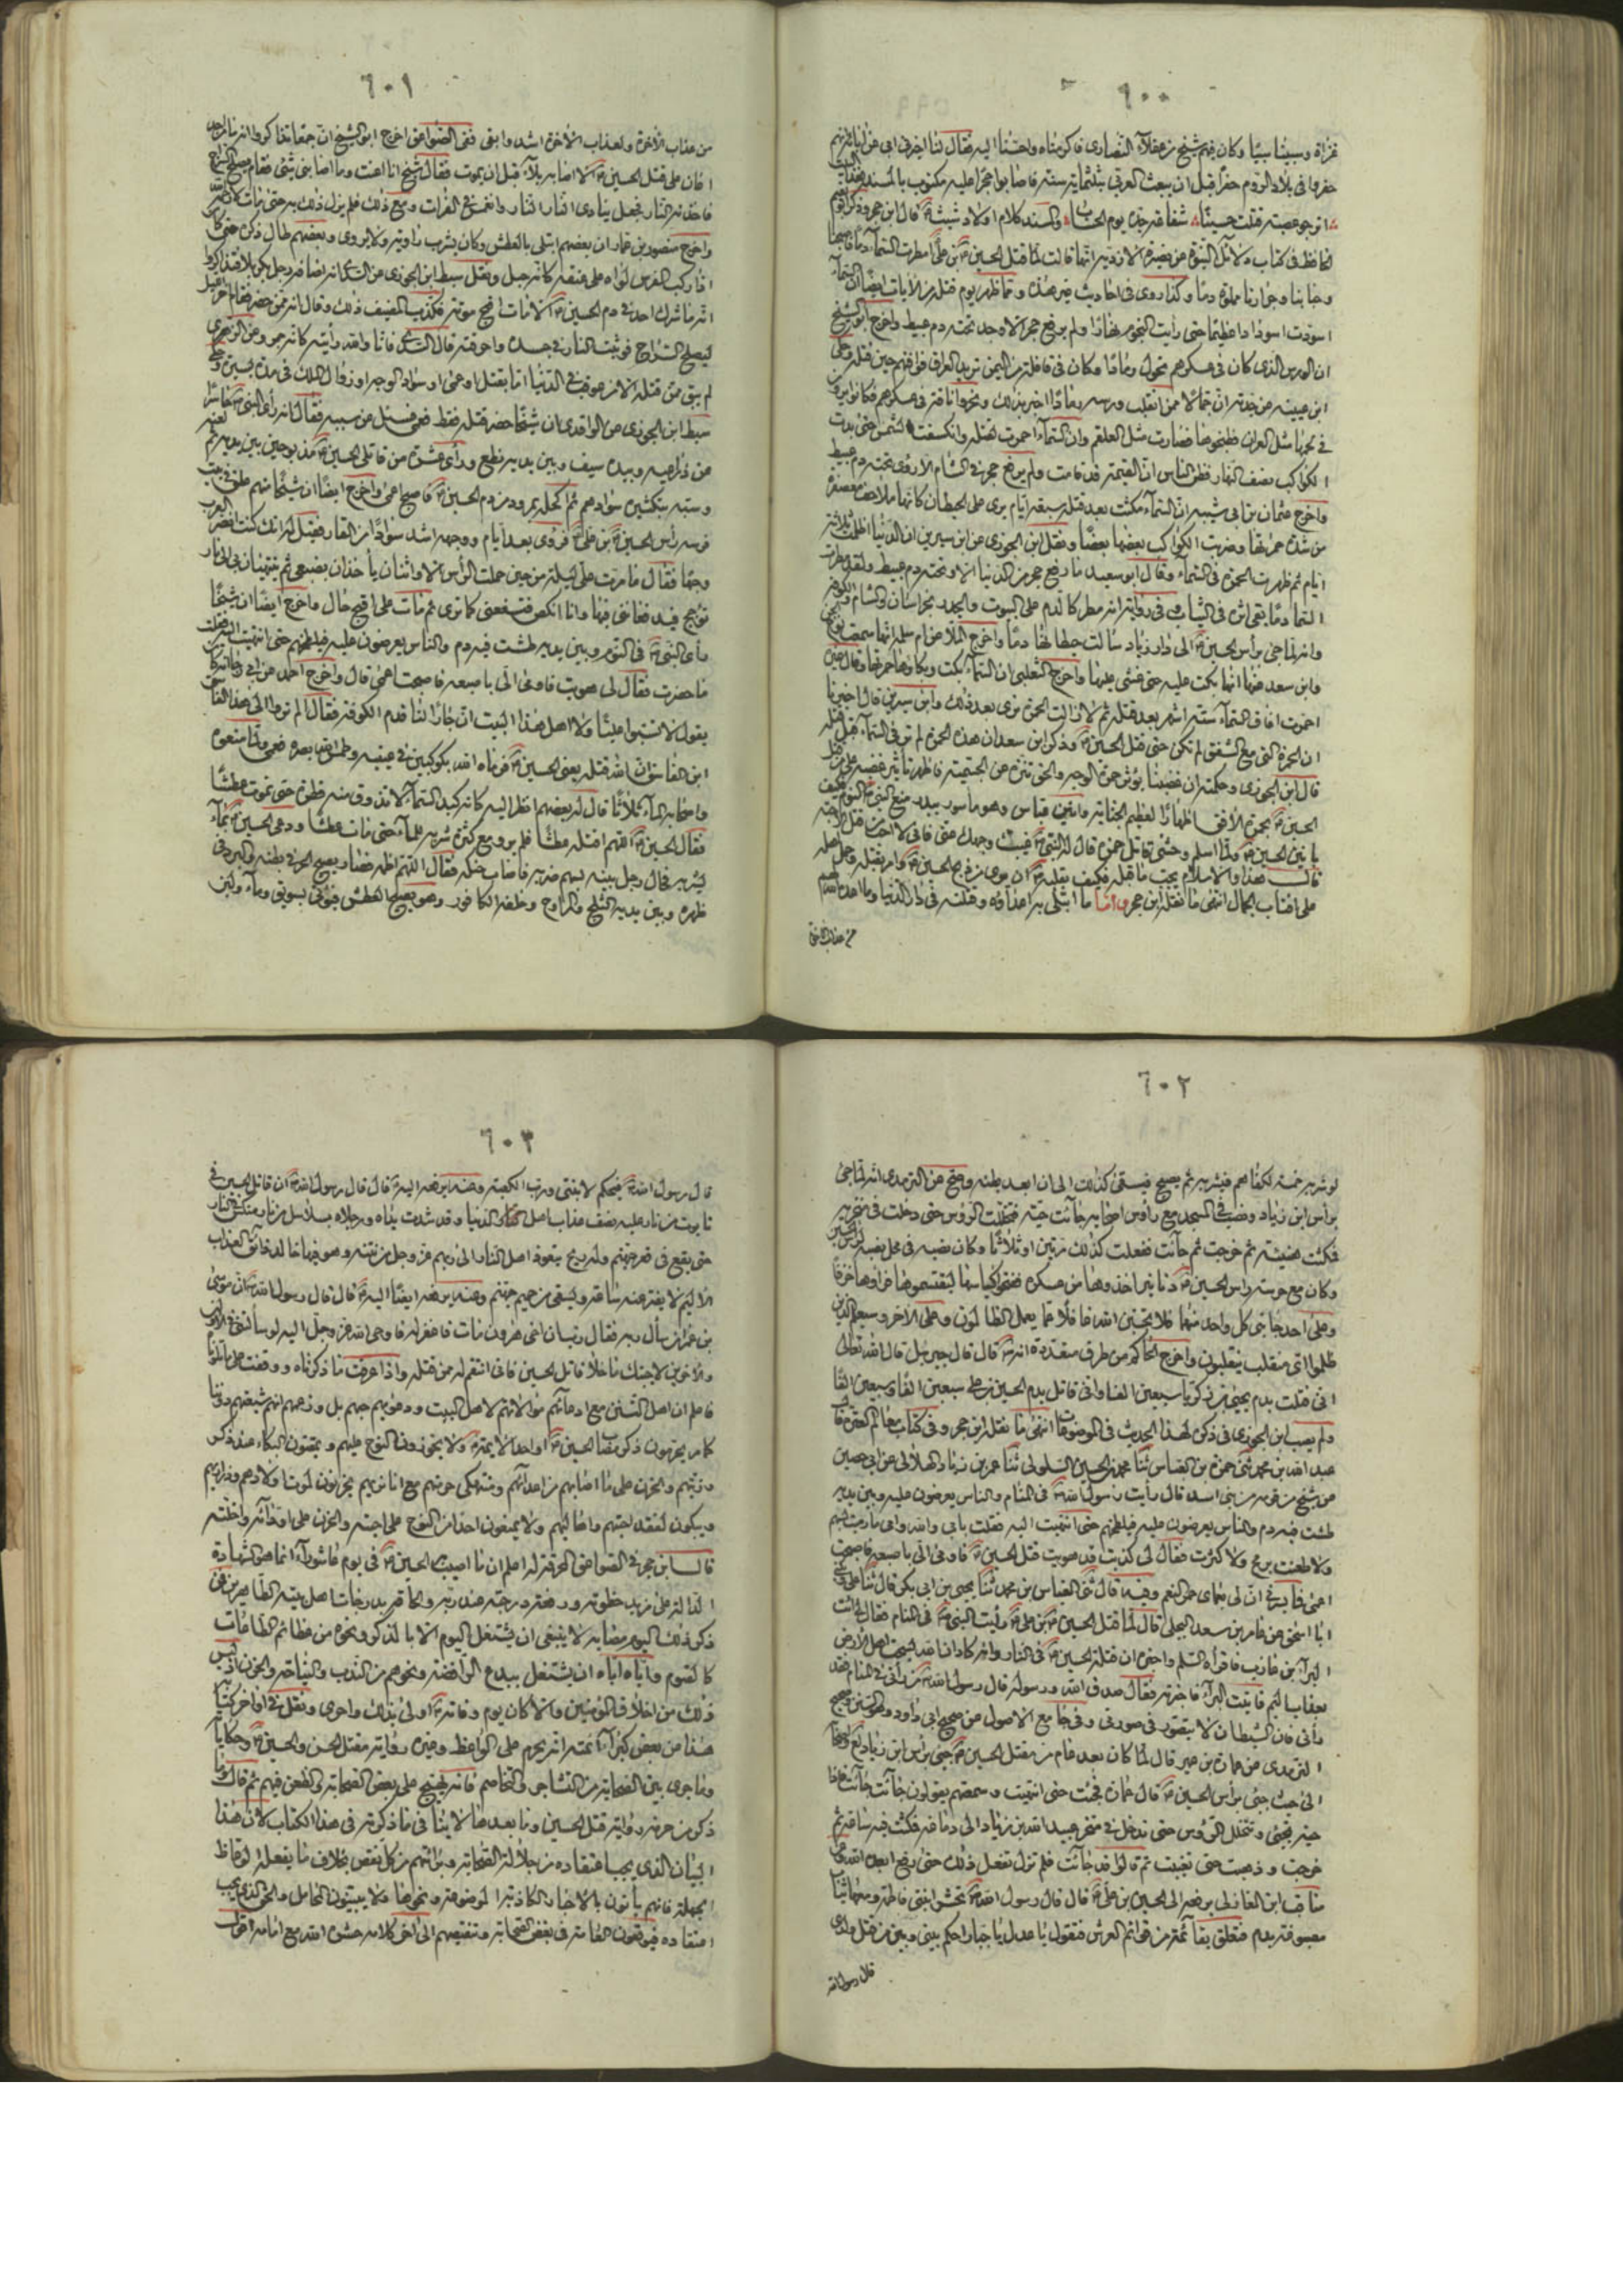 ٦٠٠
غزاة وسبينا سبيا وكان فيهم شيخ من عقلاء النصارى فاكرمناه واحسنا اليه فقال لنا اخبرني ابي عن آبائه انهم
حفروا في بلاد الروم حفرا قبل ان يبعث العربي بثلثمائة سنة فاصابوا حجرا عليه مكتوب بالمسند هذا البيت
اترجو عصبة قتلت حسينا شفاعة جده يوم الحساب والمسند كلام اولاد شيث قال ابن حجر وذكر ابو نعيم
الحافظ في كتاب دلائل النبوة عن نضرة الازدية انها قالت لما قتل الحسين بن علي مطرت السماء دما فاصبحنا
وجبابنا وجرارنا مملوة دما وكذا روى في احاديث غير هذه ومما ظهر يوم قتله من الآيات ايضا ان السماء
اسودت اسودادا عظيما حتى رأيت النجوم نهارا ولم يرفع حجر الا وجد تحته دم عبيط واخرج ابو الشيخ
ان الورس الذي كان في عسكرهم تحول رمادا وكان في قافلة من اليمن تريد العراق فوافتهم حين قتله وحكى
ابن عيينة عن جدته ان جمالا ممن انقلب ورسه رمادا اخبرها بذلك ونحروا ناقة في عسكرهم فكانوا يرون
في لحمها مثل الفيران فطبخوها فصارت مثل العلقم وان السماء احمرت لقتله وانكسفت الشمس حتى بدت
الكواكب نصف النهار فظن الناس ان القيمة قد قامت ولم يرفع حجر في الشام الا رؤى تحته دم عبيط
واخرج عثمان بن ابي شيبه ان السماء مكثت بعد قتله سبعة ايام يرى على الحيطان كانها ملاحف معصفرة
من شدة حمرتها وضربت الكواكب بعضها بعضا ونقل ابن الجوزى عن ابن سيرين ان الدنيا اظلمت ثلاثة
ايام ثم ظهرت الحمرة في السماء وقال ابو سعيد ما رفع حجر من الدنيا الا وتحته دم عبيط ولقد مطرت
السماء دما بقى اثره في الثياب وفي رواية انه مطر كالدم على البيوت والجدر بخراسان والشام والكوفة
وانه لما جيء برأس الحسين الى دار زياد سالت حيطانها دما واخرج
احمرت آفاق السماء ستة اشهر بعد قتله ثم لا زالت الحمرة ترى بعد ذلك وابن سيرين قال اخبرنا
ان الحمرة التي مع الشفق لم تكن حتى قتل الحسين وذكر ابن سعد ان هذه الحمرة لم تر في السماء قبل قتله
قال ابن الجوزى وحكمته ان غضبنا يؤثر حمرة الوجه والحق تنزه عن الجسمية فاظهر تأثير غضبه على من قتل
الحسين بحمرة الأفق اظهارا لعظيم الجناية وانين عباس وهو مأسور ببدر منع النبي النوم فكيف
بانين الحسين ولما اسلم وحشى قاتل حمزة قال له النبي غيب وجهك عني فاني لا احب
قال هذا والاسلام يجب ما قبله فكيف بقلبه ان يرى من ذبح الحسين وامر بقتله وحمل اهله
على اقتاب الجمال انتهى ما نقله ابن حجر واما ما ابتلى به اعداؤه وقتلته في دار الدنيا وما اعد الله لهم
من عذاب الآخرة
٦٠١
من عذاب الآخرة ولعذاب الآخرة اشد وابقى ففي الصواعق اخرج ابو الشيخ ان جمعا تذاكروا انه ما من احد
اعان على قتل الحسين الا اصابه بلاء قبل ان يموت فقال شيخ انا اعنت وما اصابني شيء فقام ليصلح السراج
فاخذته النار فجعل ينادي النار النار وانغمس في الفرات ومع ذلك فلم يزل ذلك به حتى مات
واخرج منصور بن عمار ان بعضهم ابتلى بالعطش وكان يشرب راوية ولا يروى وبعضهم طال ذكره حتى كان
اذا ركب الفرس لواه على عنقه كانه حبل ونقل سبط ابن الجوزى عن السدى انه اضافه رجل بكربلا فتذاكروا
انه ما شرك احد في دم الحسين الا مات اقبح موتة فكذب المضيف ذلك وقال انه ممن حضر فقام آخر الليل
ليصلح السراج فوثبت النار في جسده واحرقته قال السدى فانا والله رأيته كانه حممة وعن الزهرى
لم يبق ممن قتله الا من عوقب في الدنيا اما بقتل او عمى او سواد الوجه او زوال الملك في مدة يسيرة وحكى
سبط ابن الجوزى عن الواقدى ان شيخا حضر قتله فقط فعمى فسئل عن سببه فقال انه رأى النبي حاسرا
عن ذراعيه وبيده سيف وبين يديه نطع ورأى عشرة من قاتلى الحسين مذبوحين بين يديه ثم لعنه
وسبه بتكثيره سوادهم ثم اكحله بمرود من دم الحسين فاصبح اعمى واخرج ايضا ان شيخا منهم علق في لبب
فرسه رأس الحسين بن علي فرؤى بعد ايام ووجهه اشد سوادا من القار فقيل له انك كنت انضر العرب
وجها فقال ما مرت على ليلة من حين حملت الرأس الا واثنان يأخذان بضبعى ثم ينتهيان بي الى نار
تؤجج فيدفعاني فيها وانا انكص فتسفعنى كما ترى ثم مات على اقبح حال واخرج ايضا ان شيخا
رأى النبي في النوم وبين يديه طشت فيه دم والناس يعرضون عليه فيلطخهم حتى انتهيت اليه فقلت
ما حضرت فقال لي هويت فاومى الي باصبعه فاصبحت اعمى قال واخرج احمد عن ابي رجاء انه كان
يقول لا تسبوا عليا ولا اهل هذا البيت ان جارا لنا قدم الكوفة فقال الم تروا الى هذا الفاسق
ابن الفاسق ان الله قتله يعنى الحسين فرماه الله بكوكبين في عينيه وطمس الله بصره
واصحابه الماء ثلاثا قال له بعضهم انظر اليه كانه كبد السماء لا تذوق منه قطرة حتى تموت عطشا
فقال الحسين اللهم اقتله عطشا فلم يرو مع كثرة شربه للماء حتى مات عطشا ودعى الحسين بماء
ليشربه فحال رجل بينه بسهم ضربه فاصاب حنكه فقال اللهم اظمه فصار يصيح الحر في بطنه والبرد في
ظهره وبين يديه الثلج والمراوح وخلفه الكافور وهو يصيح العطش فيؤتى بسويق وماء ولبن
٦٠٢
لو شربه خمسة لكفاهم فيشربه ثم يصيح فيسقى كذلك الى ان انقد بطنه وصح عن الترمذى انه لما جيء
برأس ابن زياد ونصب في المسجد مع رؤس اصحابه جاءت حية فتخللت الرؤس حتى دخلت في منخره
فمكثت هنيئة ثم خرجت ثم جاءت ففعلت كذلك مرتين او ثلاثا وكان نصبه في محل نصبه لرأس الحسين
وكان مع حرسة راس الحسين دنانير اخذوها من عسكره ففتحوا اكياسها ليقتسموها فرأوها خزفا
وعلى احد جانبي كل واحد منها فلا تحسبن الله غافلا عما يعمل الظالمون وعلى الآخر وسيعلم الذين
ظلموا اي منقلب ينقلبون واخرج الحاكم من طرق متعددة انه قال قال جبريل قال الله تعالى
اني قتلت بدم يحيى بن زكريا سبعين الفا واني قاتل بدم الحسين بن علي سبعين الفا وسبعين الفا
ولم يصب ابن الجوزى في ذكره لهذا الحديث في الموضوعات انتهى ما نقله ابن حجر وفي كتاب معالم العترة
عبد الله بن محمد ثنى حمزة بن العباس ثنا محمد بن الحسين السلولي ثنا عمر بن زياد الهلالي عن ابي حصين
عن شيخ من قومه من بني اسد قال رأيت رسول الله في المنام والناس يعرضون عليه وبين يديه
طشت فيه دم والناس يعرضون عليه فيلطخهم حتى انتهيت اليه فقلت بابي والله وامي ما رميت بسهم
ولا طعنت برمح ولا كثرت فقال لي كذبت قد هويت قتل الحسين فاومى الي باصبعه فاصبحت
اعمى فما يسرني ان لي بعماى حمر النعم وفيه قال ثنى العباس بن محمد ثنا يحيى بن ابي بكر قال ثنا علي
ابا اسحق عن عامر بن سعد البجلي قال لما قتل الحسين بن علي رأيت النبي في المنام فقال ائت
البراء بن عازب فاقرأه السلم واخبره ان قتلة الحسين في النار وان كاد الله ليسحت اهل الارض
بعذاب اليم فاتيت البراء فاخبرته فقال صدق الله ورسوله قال رسول الله من رآني في المنام فقد
رأني فان الشيطان لا يتصور في صورتي وفي جامع الاصول من صحيح ابي داود وهو السنن وصحيح
الترمذى عن عمارة بن عمير قال لما كان بعد عام من مقتل الحسين جيء برأس ابن زياد
الى حيث جيء برأس الحسين قال عمارة فجئت حتى انتهيت وسمعتهم يقولون جاءت جاءت فاذا
حية تجيء وتتخلل الرؤس حتى تدخل في منخر عبيد الله بن زياد الى دماغه فمكثت فيه ساعة ثم
خرجت وذهبت حتى تغيبت ثم قالوا قد جاءت فلم تزل تفعل ذلك حتى رفع
مناقب ابن المغازلي يرفعه الى الحسين بن علي قال قال رسول الله تحشر ابنتي فاطمة ومعها ثياب
مصبوغة بدم فتعلق بقائمة من قوائم العرش فتقول يا عدل يا جبار احكم بيني وبين من قتل ولدي
قال رسول الله
٦٠٣
قال رسول الله فيحكم لابنتي ورب الكعبة وعنه يرفعه اليه قال قال رسول الله ان قاتل الحسين في
تابوت من نار عليه نصف عذاب اهل الدنيا وقد شدت يداه ورجلاه بسلاسل من نار منكس في النار
حتى يقع في قعر جهنم وله ريح يتعوذ اهل النار الى ربهم عز وجل من نتنه وهو فيها خالد ذائق العذاب
الاليم لا يفتر عنه ساعة ويسقى من حميم جهنم وعنه يرفعه ايضا اليه قال قال رسول الله ان موسى
بن عمران سأل ربه فقال رب ان اخي هرون مات فاغفر له فاوحى الله عز وجل اليه لو سألتني في الاولين
والآخرين لاجبتك ما خلا قاتل الحسين فاني انتقم له ممن قتله واذا عرفت ما ذكرناه ووقفت على ما تلوناه
فاعلم ان اهل التسنن مع ادعائهم موالاتهم لاهل البيت ودعويهم حبهم بل وزعمهم انهم شيعتهم
كما مر يحرمون ذكر مصاب الحسين او احد الايمة ولا يجوزون النوح عليهم ويمنعون البكاء عند ذكر
رزيتهم والحزن على ما اصابهم من اعدائهم ومنتهكى حرمتهم مع انا نريهم يحزنون لموت اولادهم وذراريهم
ويبكون لفقد احبتهم واهاليهم ولا يمنعون احدا من النوح على احبته والحزن على اودائه واخلته
قال ابن حجر في الصواعق المحرقة له اعلم ان ما اصيب به الحسين في يوم عاشوراء انما هو الشهادة
الدالة على مزيد حظوته ورفعته ودرجته عند ربه والحاقه بدرجات اهل بيته الطاهرين فمن
ذكر ذلك اليوم مصابه لا ينبغي ان يشتغل اليوم الا بالذكر ونحوه من عظائم الطاعات
كالصوم واياه اياه ان يشتغل ببدع الرافضة ونحوهم من الندب والنياحة والحزن اذ ليس
ذلك من اخلاق المؤمنين والا لكان يوم وفاته اولى بذلك واحرى ونقل في اواخر كتابه
هذا عن بعض كبراء ائمته انه يحرم على الواعظ وغيره رواية مقتل الحسن والحسين وحكاياته
وما جرى بين الصحابة من التشاجر والتخاصم فانه يهيج على بغض الصحابة والطعن فيهم ثم قال وما
ذكر من حرمة رواية قتل الحسين وما بعدها لا ينافي ما ذكرته في هذا الكتاب لان هذا
البيان الذي يجب اعتقاده من جلالة الصحابة وبرائتهم من كل نقص بخلاف ما يفعله الوعاظ
الجهلة فانهم يأتون بالاخبار الكاذبة الموضوعة ونحوها ولا يبينون المحامل والحق الذي يجب
اعتقاده فيوقعون العامة في بغض الصحابة وتنقيصهم الى آخر كلامه حشره الله مع امامه اقول